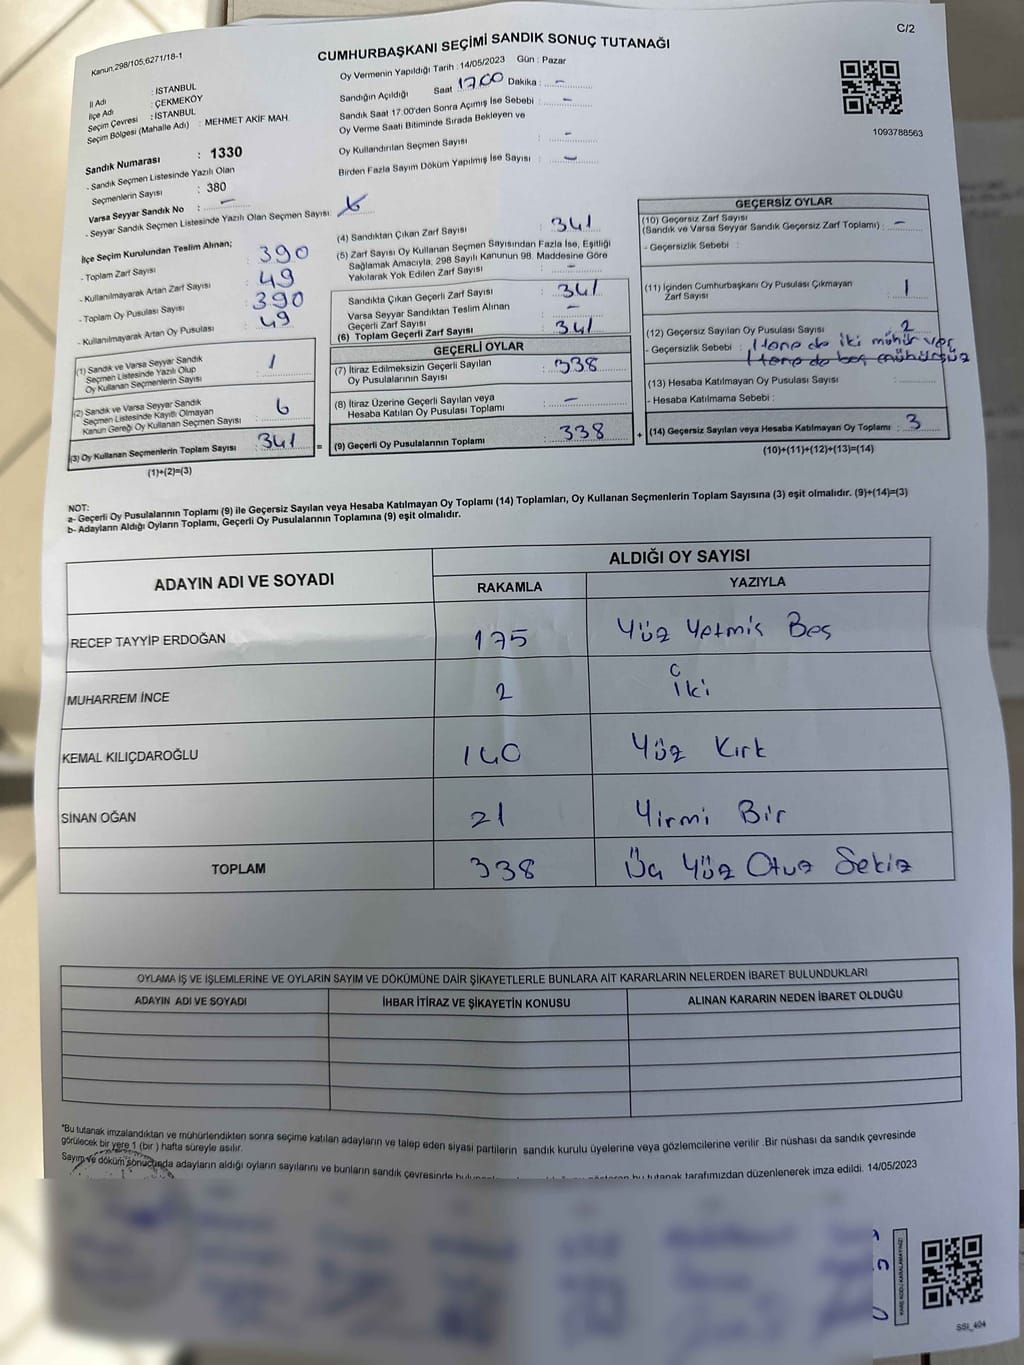 Kanun;298/105,6271/18-1
C/2
CUMHURBAŞKANI SEÇİMİ SANDIK SONUÇ TUTANAĞI
İl Adı : İSTANBUL
İlçe Adı : ÇEKMEKÖY
Seçim Çevresi : İSTANBUL
Seçim Bölgesi (Mahalle Adı) : MEHMET AKİF MAH.
Sandık Numarası : 1330
- Sandık Seçmen Listesinde Yazılı Olan
Seçmenlerin Sayısı : 380
Varsa Seyyar Sandık No : –
- Seyyar Sandık Seçmen Listesinde Yazılı Olan Seçmen Sayısı:
Oy Vermenin Yapıldığı Tarih : 14/05/2023 Gün : Pazar
Sandığın Açıldığı Saat 17.00 Dakika : –
Sandık Saat 17.00'den Sonra Açımış İse Sebebi : –
Oy Verme Saati Bitiminde Sırada Bekleyen ve
Oy Kullandırılan Seçmen Sayısı : –
Birden Fazla Sayım Döküm Yapılmış İse Sayısı : –
1093788563
İlçe Seçim Kurulundan Teslim Alınan;
- Toplam Zarf Sayısı : 390
- Kullanılmayarak Artan Zarf Sayısı : 49
- Toplam Oy Pusulası Sayısı : 390
- Kullanılmayarak Artan Oy Pusulası : 49
(1) Sandık ve Varsa Seyyar Sandık
Seçmen Listesinde Yazılı Olup
Oy Kullanan Seçmenlerin Sayısı : 1
(2) Sandık ve Varsa Seyyar Sandık
Seçmen Listesinde Kayıtlı Olmayan
Kanun Gereği Oy Kullanan Seçmen Sayısı : 6
(3) Oy Kullanan Seçmenlerin Toplam Sayısı : 341
(1)+(2)=(3)
(4) Sandıktan Çıkan Zarf Sayısı : 341
(5) Zarf Sayısı Oy Kullanan Seçmen Sayısından Fazla İse, Eşitliği
Sağlamak Amacıyla, 298 Sayılı Kanunun 98. Maddesine Göre
Yakılarak Yok Edilen Zarf Sayısı : –
Sandıkta Çıkan Geçerli Zarf Sayısı : 341
Varsa Seyyar Sandıktan Teslim Alınan
Geçerli Zarf Sayısı : –
(6) Toplam Geçerli Zarf Sayısı : 341
GEÇERLİ OYLAR
(7) İtiraz Edilmeksizin Geçerli Sayılan
Oy Pusulalarının Sayısı : 338
(8) İtiraz Üzerine Geçerli Sayılan veya
Hesaba Katılan Oy Pusulası Toplamı : –
= (9) Geçerli Oy Pusulalarının Toplamı : 338 +
GEÇERSİZ OYLAR
(10) Geçersiz Zarf Sayısı
(Sandık ve Varsa Seyyar Sandık Geçersiz Zarf Toplamı) : –
- Geçersizlik Sebebi :
(11) İçinden Cumhurbaşkanı Oy Pusulası Çıkmayan
Zarf Sayısı : 1
(12) Geçersiz Sayılan Oy Pusulası Sayısı : 2
- Geçersizlik Sebebi : 1 tane de iki mühür var
1 tane de boş mühürsüz
(13) Hesaba Katılmayan Oy Pusulası Sayısı :
- Hesaba Katılmama Sebebi :
(14) Geçersiz Sayılan veya Hesaba Katılmayan Oy Toplamı : 3
(10)+(11)+(12)+(13)=(14)
NOT:
a- Geçerli Oy Pusulalarının Toplamı (9) ile Geçersiz Sayılan veya Hesaba Katılmayan Oy Toplamı (14) Toplamları, Oy Kullanan Seçmenlerin Toplam Sayısına (3) eşit olmalıdır. (9)+(14)=(3)
b- Adayların Aldığı Oyların Toplamı, Geçerli Oy Pusulalarının Toplamına (9) eşit olmalıdır.
ADAYIN ADI VE SOYADI
ALDIĞI OY SAYISI
RAKAMLA YAZIYLA
RECEP TAYYİP ERDOĞAN 175 Yüz Yetmiş Beş
MUHARREM İNCE 2 İki
KEMAL KILIÇDAROĞLU 140 Yüz Kırk
SİNAN OĞAN 21 Yirmi Bir
TOPLAM 338 Üç Yüz Otuz Sekiz
OYLAMA İŞ VE İŞLEMLERİNE VE OYLARIN SAYIM VE DÖKÜMÜNE DAİR ŞİKAYETLERLE BUNLARA AİT KARARLARIN NELERDEN İBARET BULUNDUKLARI
ADAYIN ADI VE SOYADI İHBAR İTİRAZ VE ŞİKAYETİN KONUSU ALINAN KARARIN NEDEN İBARET OLDUĞU
*Bu tutanak imzalandıktan ve mühürlendikten sonra seçime katılan adayların ve talep eden siyasi partilerin sandık kurulu üyelerine veya gözlemcilerine verilir .Bir nüshası da sandık çevresinde
görülecek bir yere 1 (bir ) hafta süreyle asılır.
Sayım ve döküm sonucunda adayların aldığı oyların sayılarını ve bunların sandık çevresinde bu tutanak tarafımızdan düzenlenerek imza edildi. 14/05/2023
KARE KODU KARALAMAYINIZ!
SSI_404